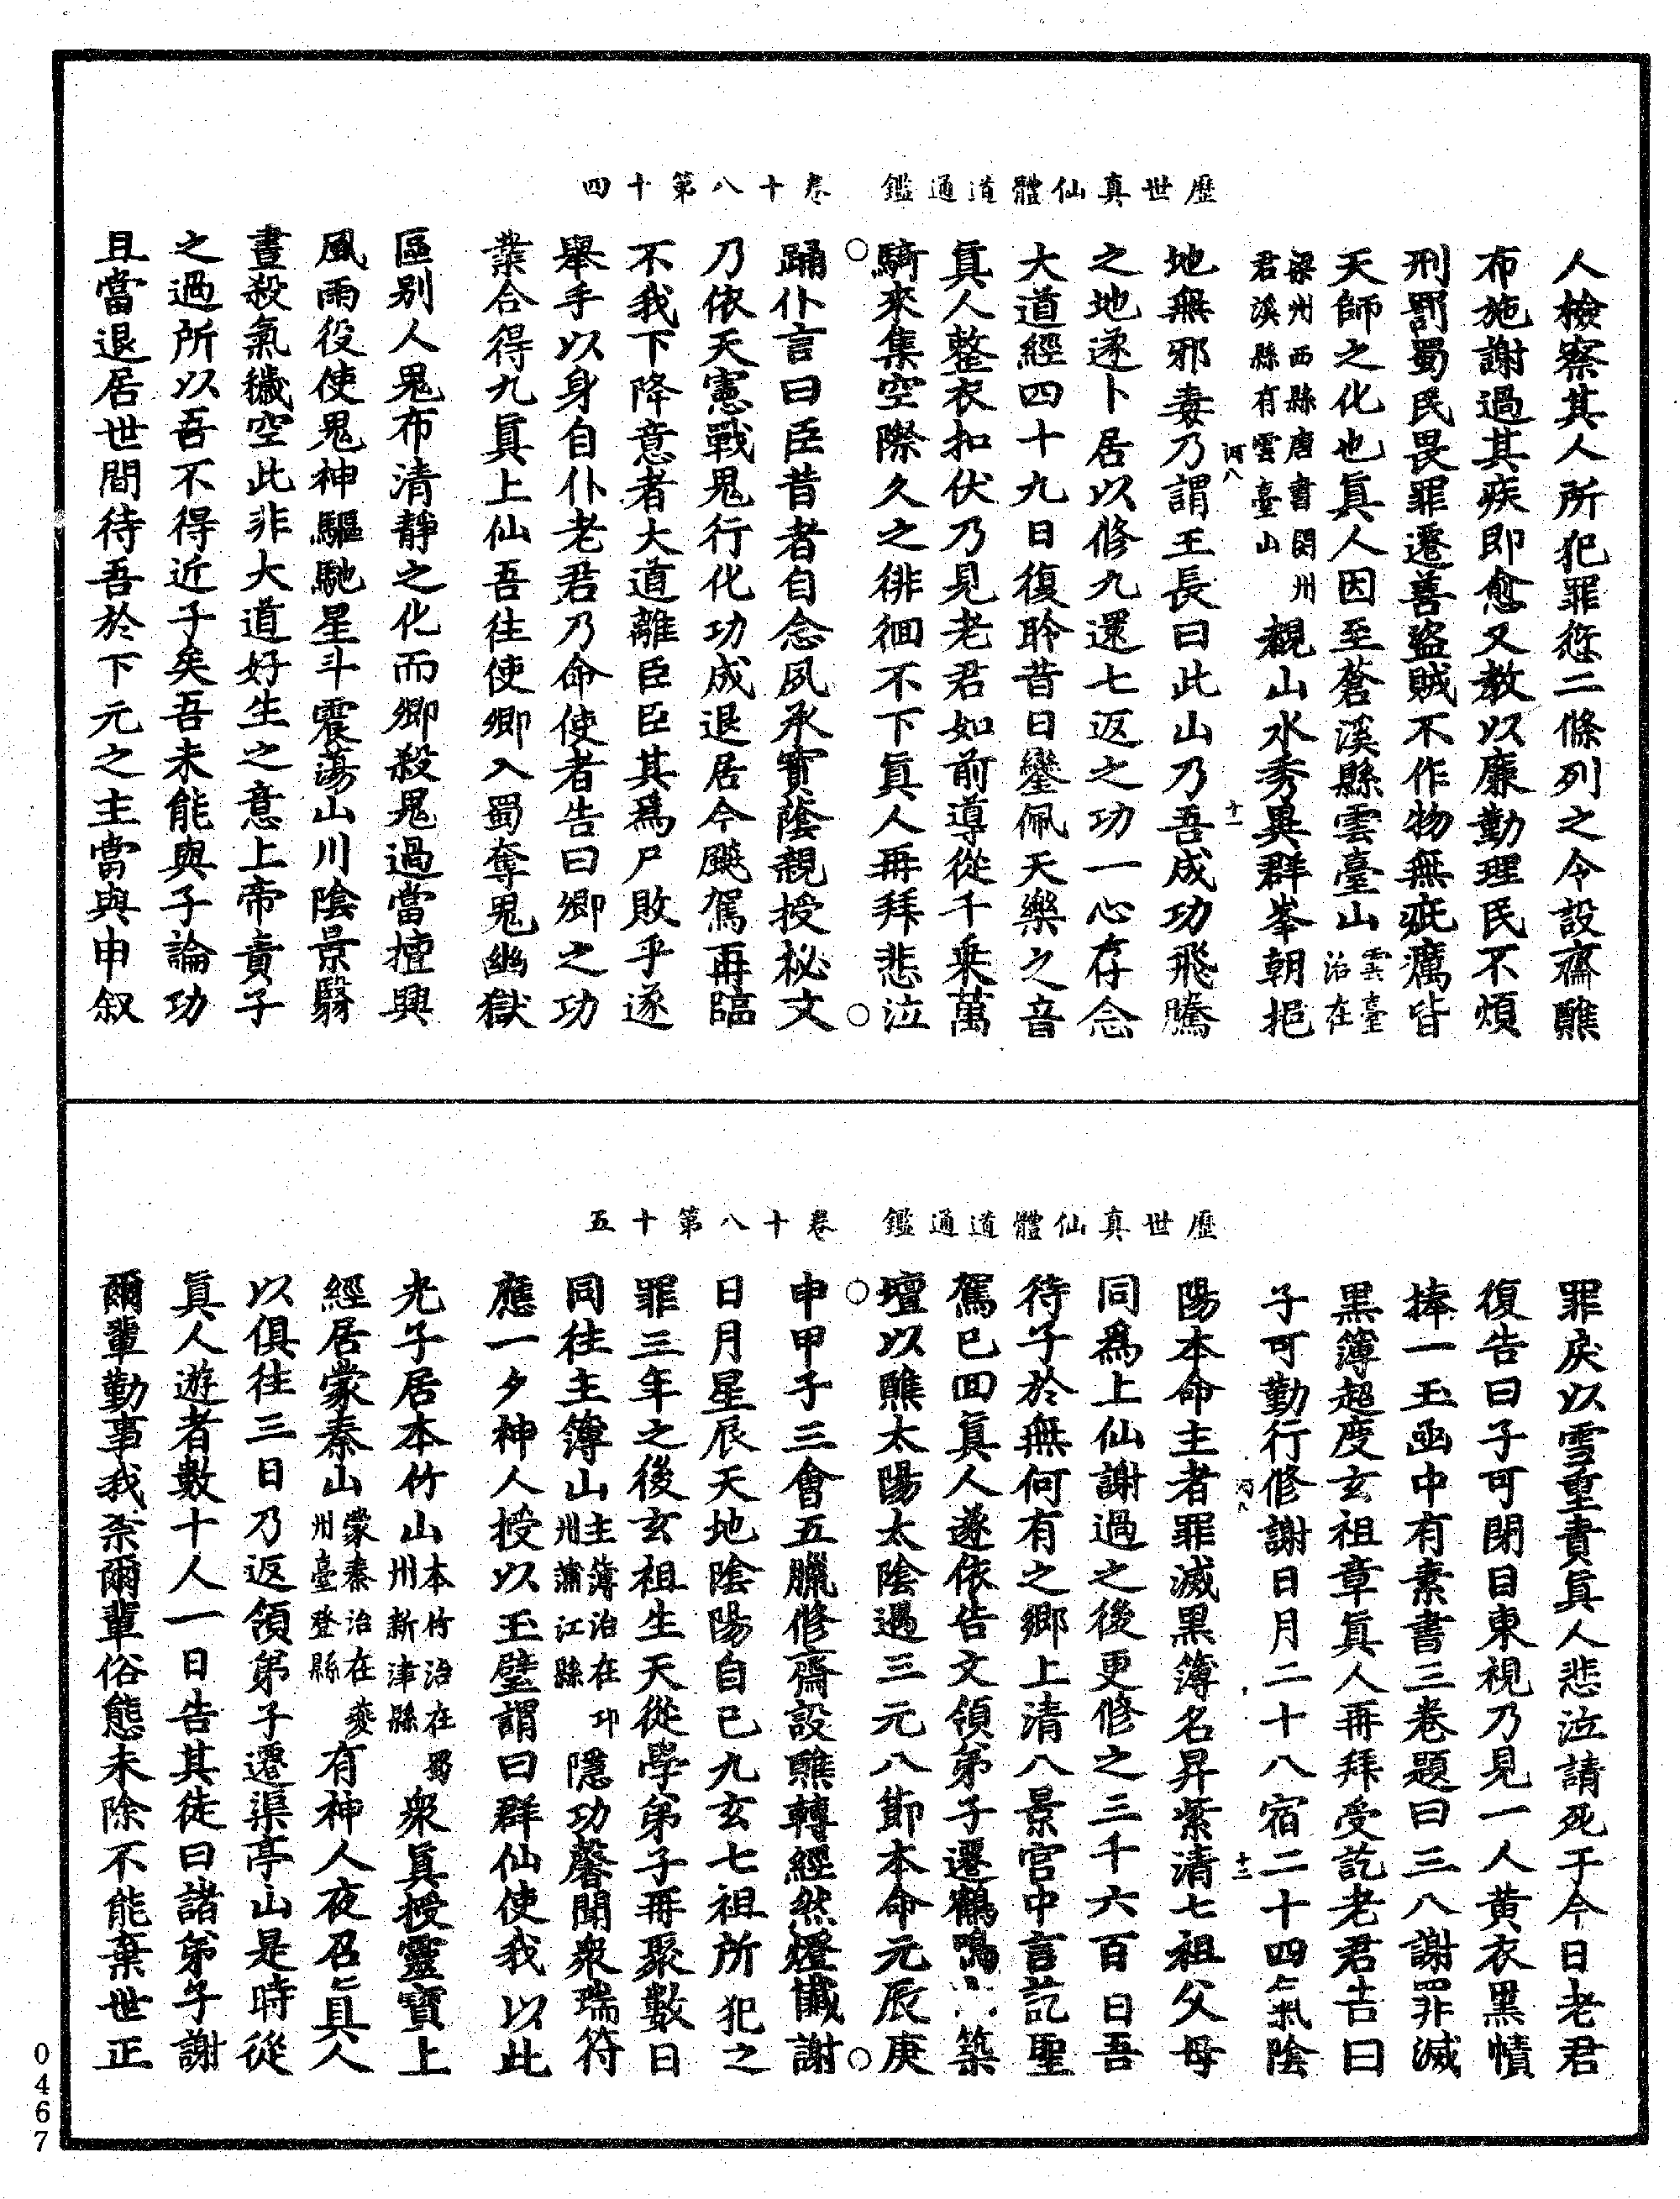 歷世真仙體道通鑑　卷十八第十四
人檢察其人所犯罪愆二條列之令設齋醮
布施謝過其疾即愈又教以廉勤理民不煩
刑罰蜀民畏罪遷善盜賊不作物無疵癘皆
天師之化也眞人因至蒼溪縣雲臺山雲臺治在
梁州西縣唐書閬州君溪縣有雲臺山覩山水秀異群峯朝挹
河八　十一
地無邪妻乃謂王長曰此山乃吾成功飛騰
之地遂卜居以修九還七返之功一心存念
大道經四十九日復聆昔日鑾佩天樂之音
眞人整衣扣伏乃見老君如前導從千乘萬
騎來集空際久之徘徊不下眞人再拜悲泣
踊仆言曰臣昔者自念夙承寳蔭親授祕文
乃依天憲戰鬼行化功成退居今飈駕再臨
不我下降意者大道離臣臣其爲尸敗乎遂
舉手以身自仆老君乃命使者告曰卿之功
業合得九眞上仙吾往使卿入蜀奪鬼幽獄
區别人鬼布清靜之化而卿殺鬼過當擅興
風雨役使鬼神驅馳星斗震蕩山川陰景翳
晝殺氣穢空此非大道好生之意上帝責子
之過所以吾不得近子矣吾未能與子論功
且當退居世間待吾於下元之主當與申叙
歷世真仙體道通鑑　卷十八第十五
罪戾以雪重責眞人悲泣請死于今日老君
復告曰子可閉目東視乃見一人黄衣黑幘
捧一玉函中有素書三卷題曰三八謝罪滅
黑簿超度玄祖章眞人再拜受訖老君告曰
子可勤行修謝日月二十八宿二十四氣陰
河八　十二
陽本命主者罪滅黑簿名昇紫清七祖父母
同爲上仙謝過之後更修之三千六百日吾
待子於無何有之鄉上清八景宮中言訖聖
駕已回眞人遂依告文領弟子遷鶴鳴山築
壇以醮太陽太陰遇三元八節本命元辰庚
申甲子三會五臘修齋設醮轉經然燈懴謝
日月星辰天地陰陽自己九玄七祖所犯之
罪三年之後玄祖生天從學弟子再聚數日
同往主簿山主簿治在邛州蒲江縣隱功馨聞衆瑞符
應一夕神人授以玉璧謂曰群仙使我以此
光子居本竹山本竹治在蜀州新津縣衆眞授靈寶上
經居蒙秦山蒙秦治在夌州臺登縣有神人夜召眞人
以俱往三日乃返領弟子遷渠亭山是時從
眞人遊者數十人一日告其徒曰諸弟子謝
爾輩勤事我柰爾輩俗態未除不能棄世正
0467